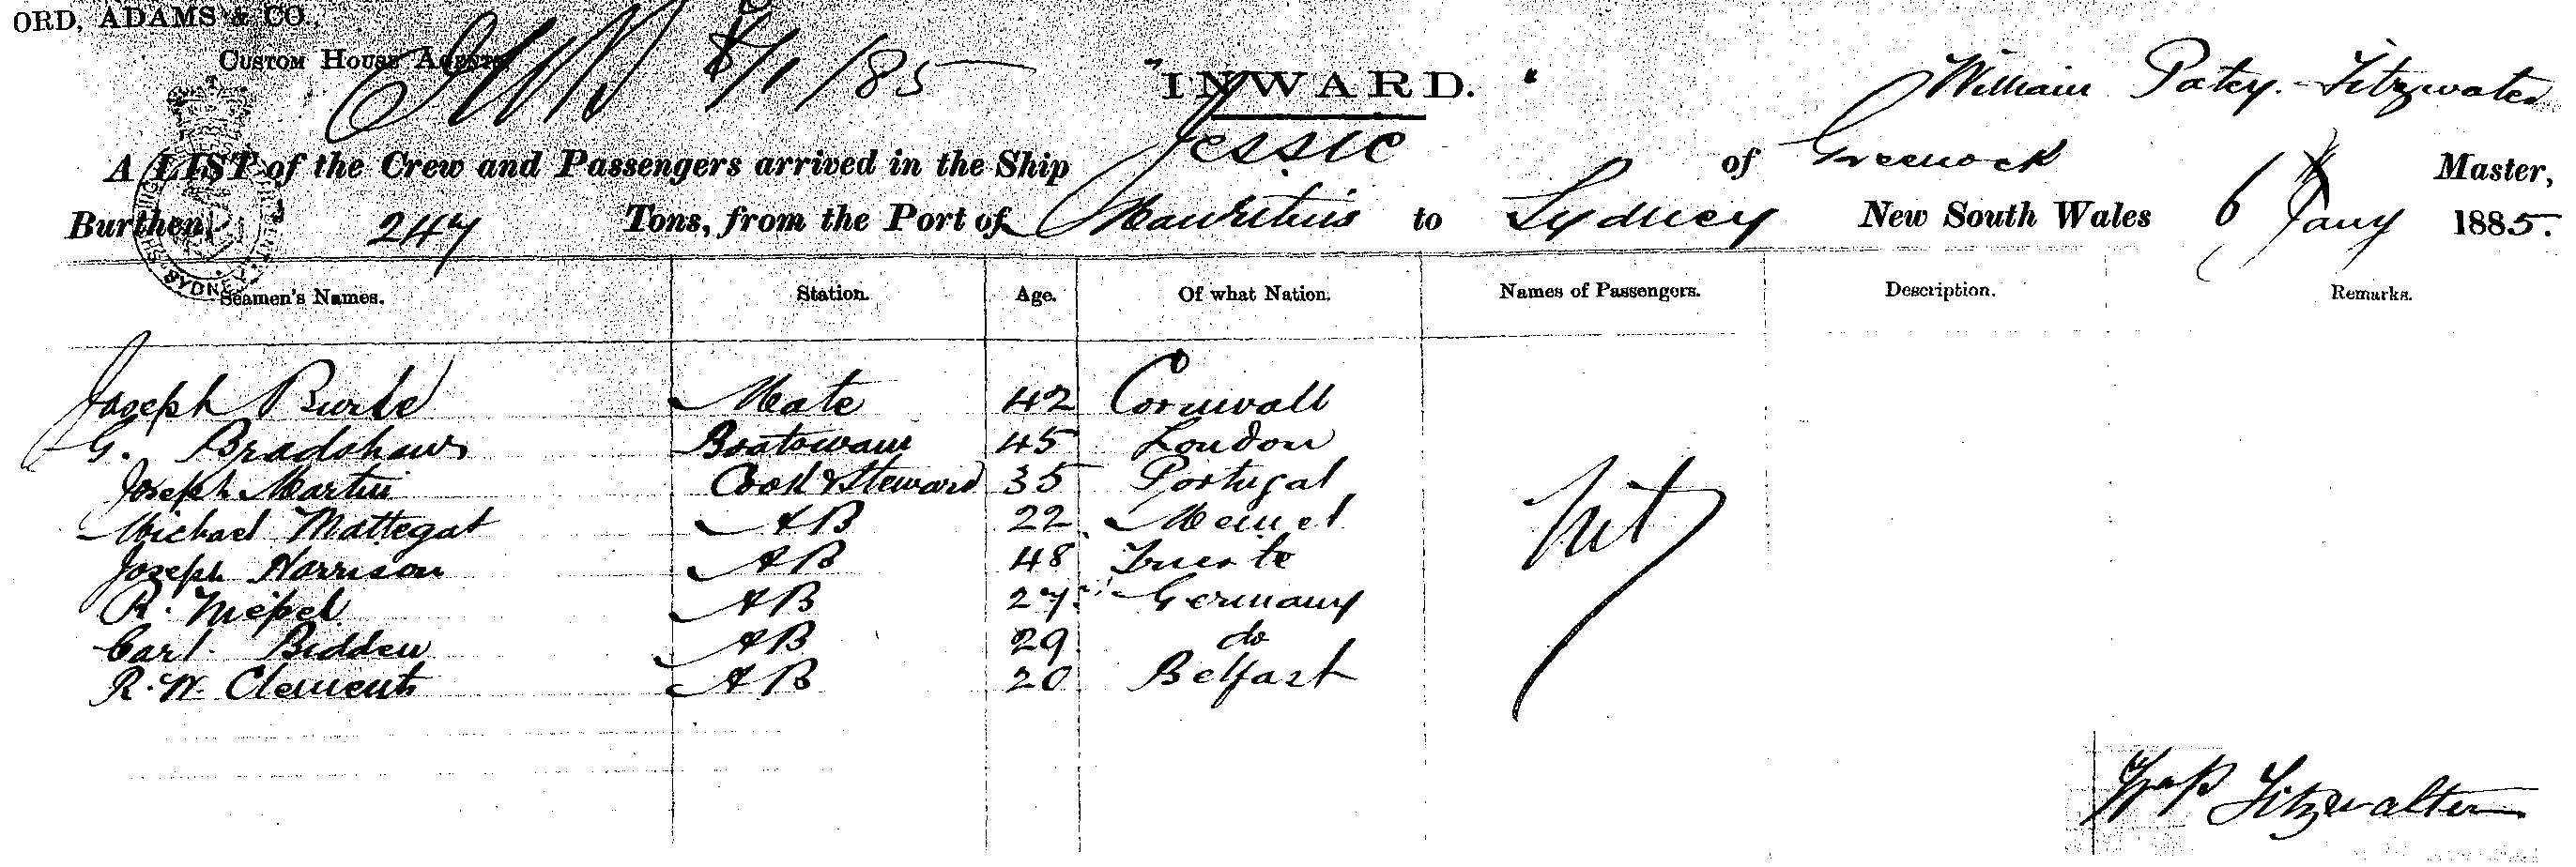 ORD, ADAMS & CO.,
CUSTOM HOUSE AGENTS
8/1/85
"INWARD."
William Patey Fitzwater
A LIST of the Crew and Passengers arrived in the Ship Jessie of Greenock Master,
Burthen 247 Tons, from the Port of Mauritius to Sydney New South Wales 6 Jany 1885.
Seamen's Names. Station. Age. Of what Nation. Names of Passengers. Description. Remarks.
Joseph Mate 42 Cornwall
G. Bradshaw Boatswain 45 London
Joseph Martin Cook & Steward 35 Portugal
Michael Mattegat AB 22 Memel
Joseph Harrison AB 48 Trieste
R. Niepel AB 27 Germany
Carl Bidden AB 29 do
R. W. Clements AB 20 Belfast
Nil
Wm P Fitzwalter